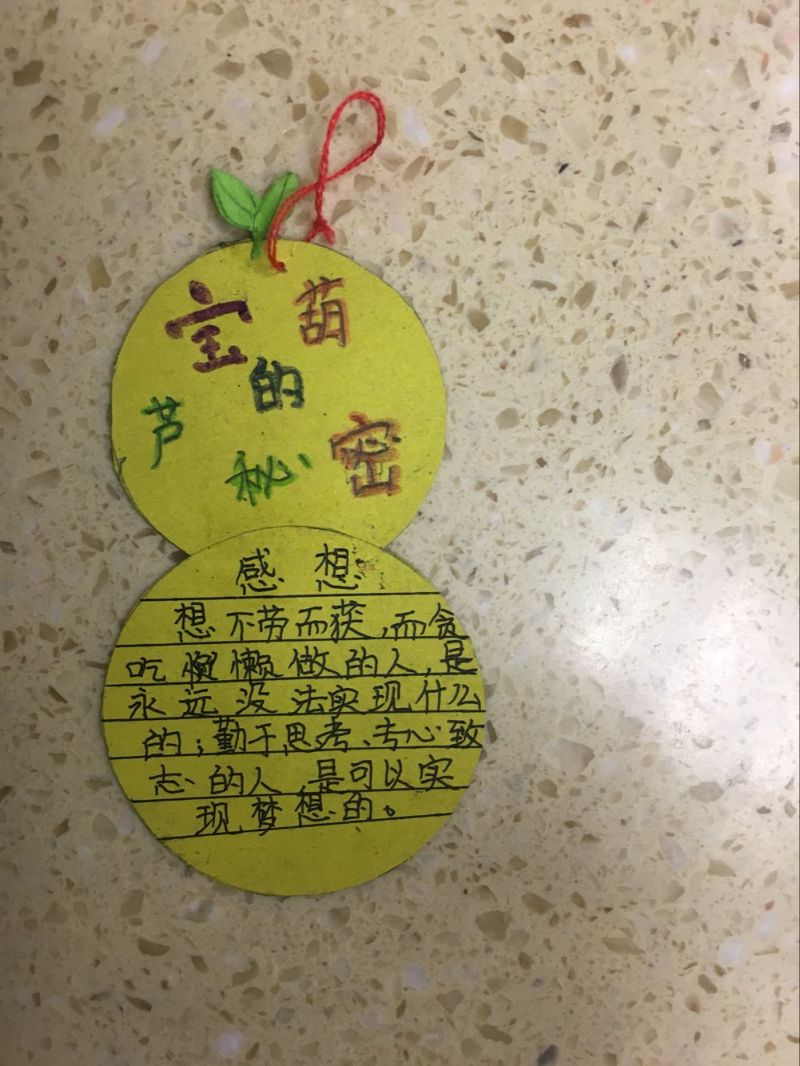 宝葫芦的秘密
感想
想不劳而获,而贪
吃懒做的人,是
永远没法实现什么
的;勤于思考、专心致
志的人 是可以实
现梦想的。